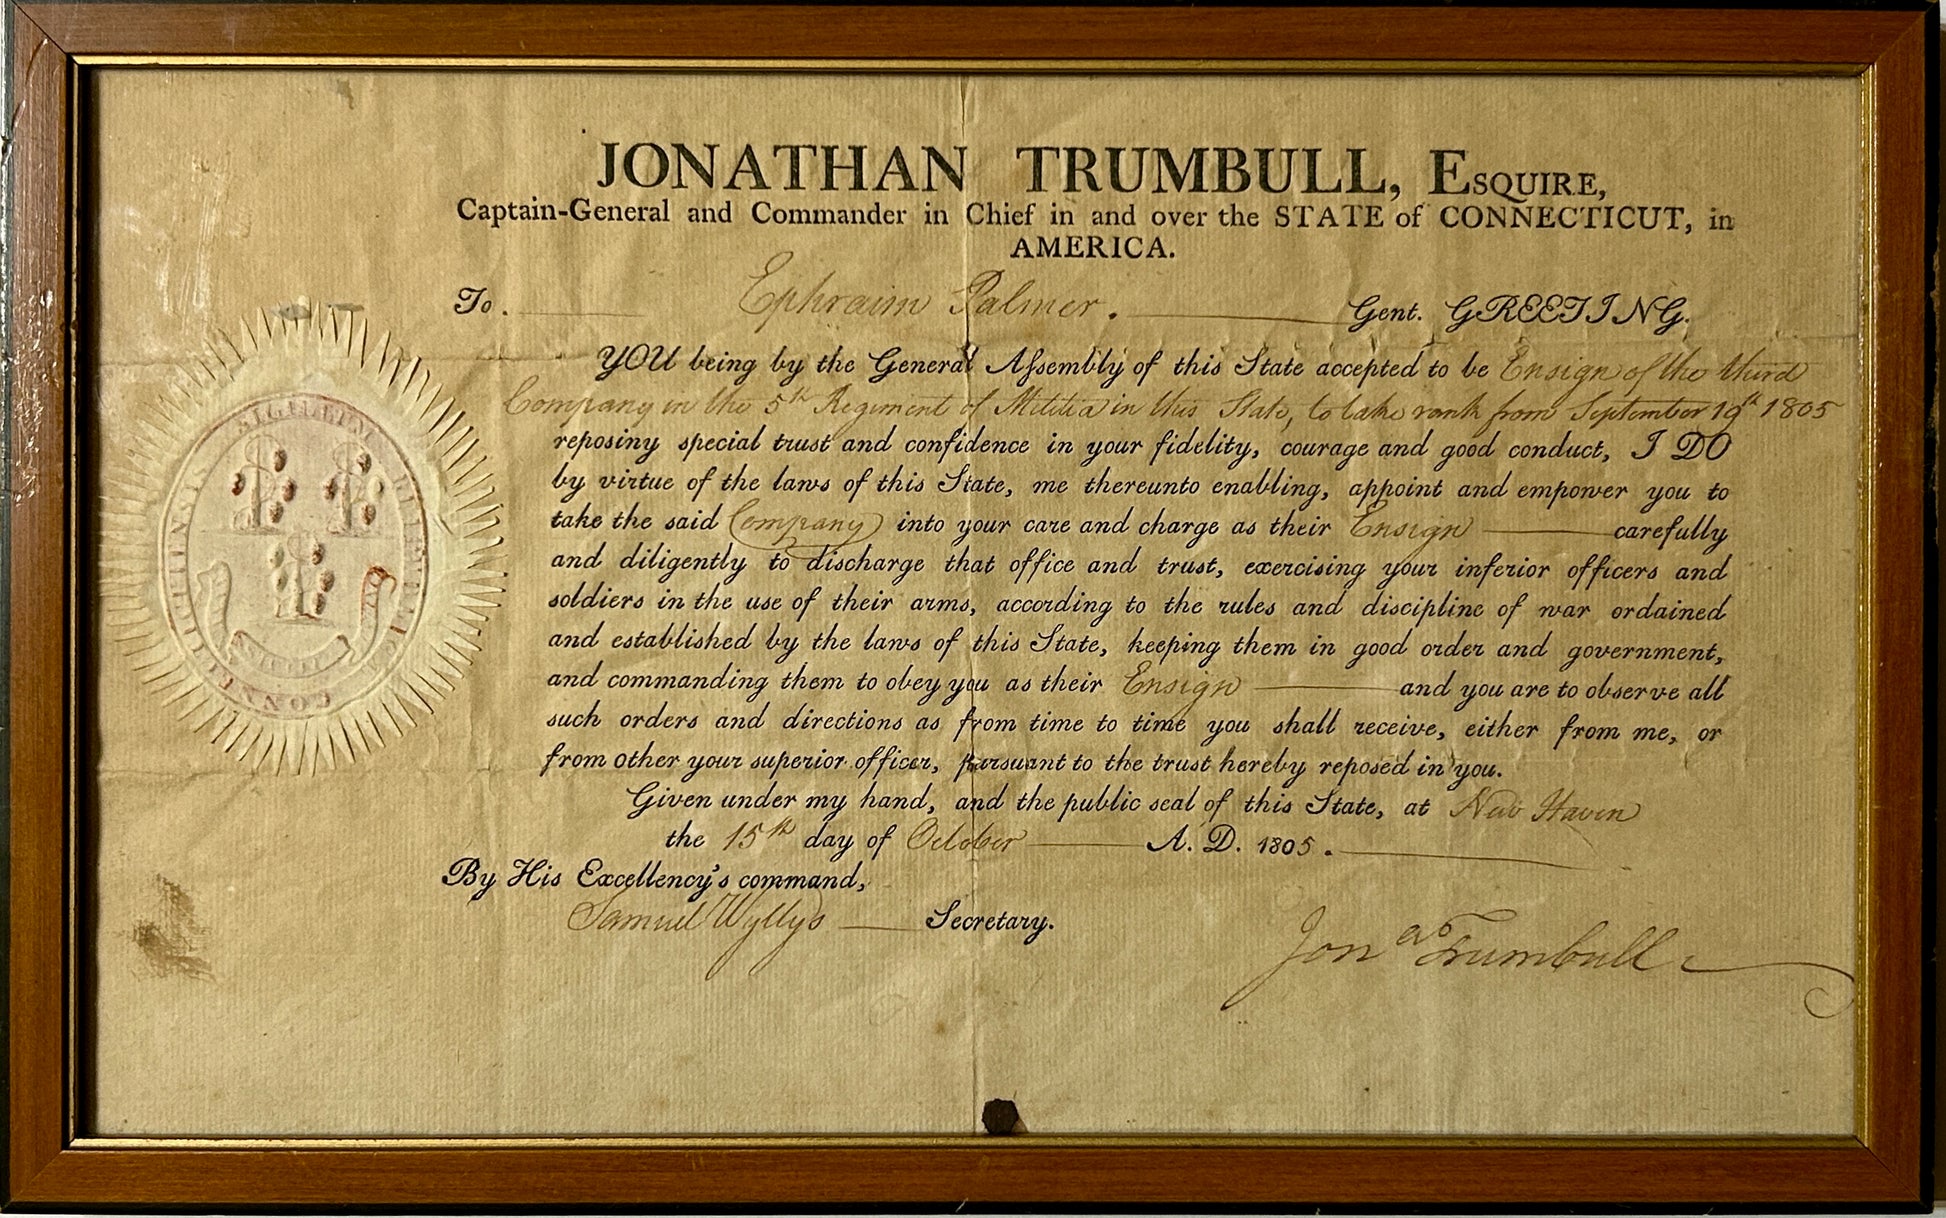 JONATHAN TRUMBULL, ESQUIRE,
Captain-General and Commander in Chief in and over the STATE of CONNECTICUT, in
AMERICA.
To. Ephraim Palmer. Gent. GREETING.
YOU being by the General Assembly of this State accepted to be Ensign of the third
Company in the 5th Regiment of Militia in this State, to take rank from September 19th 1805
reposing special trust and confidence in your fidelity, courage and good conduct, I DO
by virtue of the laws of this State, me thereunto enabling, appoint and empower you to
take the said Company into your care and charge as their Ensign carefully
and diligently to discharge that office and trust, exercising your inferior officers and
soldiers in the use of their arms, according to the rules and discipline of war ordained
and established by the laws of this State, keeping them in good order and government,
and commanding them to obey you as their Ensign and you are to observe all
such orders and directions as from time to time you shall receive, either from me, or
from other your superior officer, pursuant to the trust hereby reposed in you.
Given under my hand, and the public seal of this State, at New Haven
the 15th day of October A. D. 1805.
By His Excellency's command,
Samuel Wyllys Secretary.
Jonas Trumbull
SIGILLUM REIPUBLICÆ CONNECTICUTENSIS